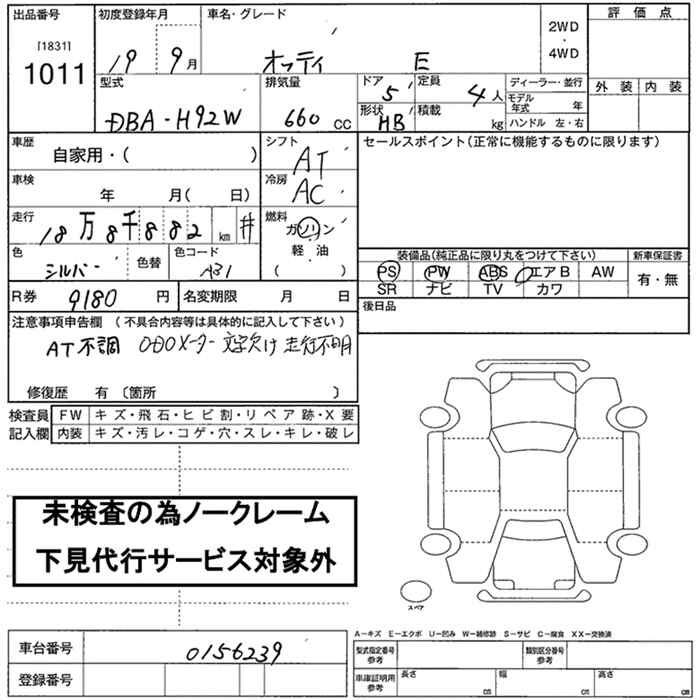 出品番号 初度登録年月 車名・グレード 2WD・4WD 評価点
[1831] 1011 19 9月 オッティ E
型式 排気量 ドア 5 定員 4人 ディーラー・並行 外装 内装
DBA-H92W 660 CC 形状 HB 積載 kg モデル年式 年
ハンドル 左・右
車歴 シフト セールスポイント(正常に機能するものに限ります)
自家用・( ) AT
車検 冷房
年 月( 日) AC
走行 燃料
18万8千882 km # ガソリン
色 色替 色コード 軽・油 装備品(純正品に限り丸をつけて下さい) 新車保証書
シルバー A31 ( ) PS PW ABS エアB AW 有・無
SR ナビ TV カワ
R券 9180 円 名変期限 月 日 後日品
注意事項申告欄 (不具合内容等は具体的に記入して下さい)
AT不調 ODOメーター文字欠け 走行不明
修復歴 有 〔箇所 〕
検査員 FW キズ・飛石・ヒビ割・リペア跡・X要
記入欄 内装 キズ・汚レ・コゲ・穴・スレ・キレ・破レ
未検査の為ノークレーム
下見代行サービス対象外
スペア
A−キズ E−エクボ U−凹み W−補修跡 S−サビ C−腐食 XX−交換済
車台番号 0156239 型式指定番号 参考 類別区分番号 参考
登録番号 車庫証明用 参考 長さ cm 幅 cm 高さ cm